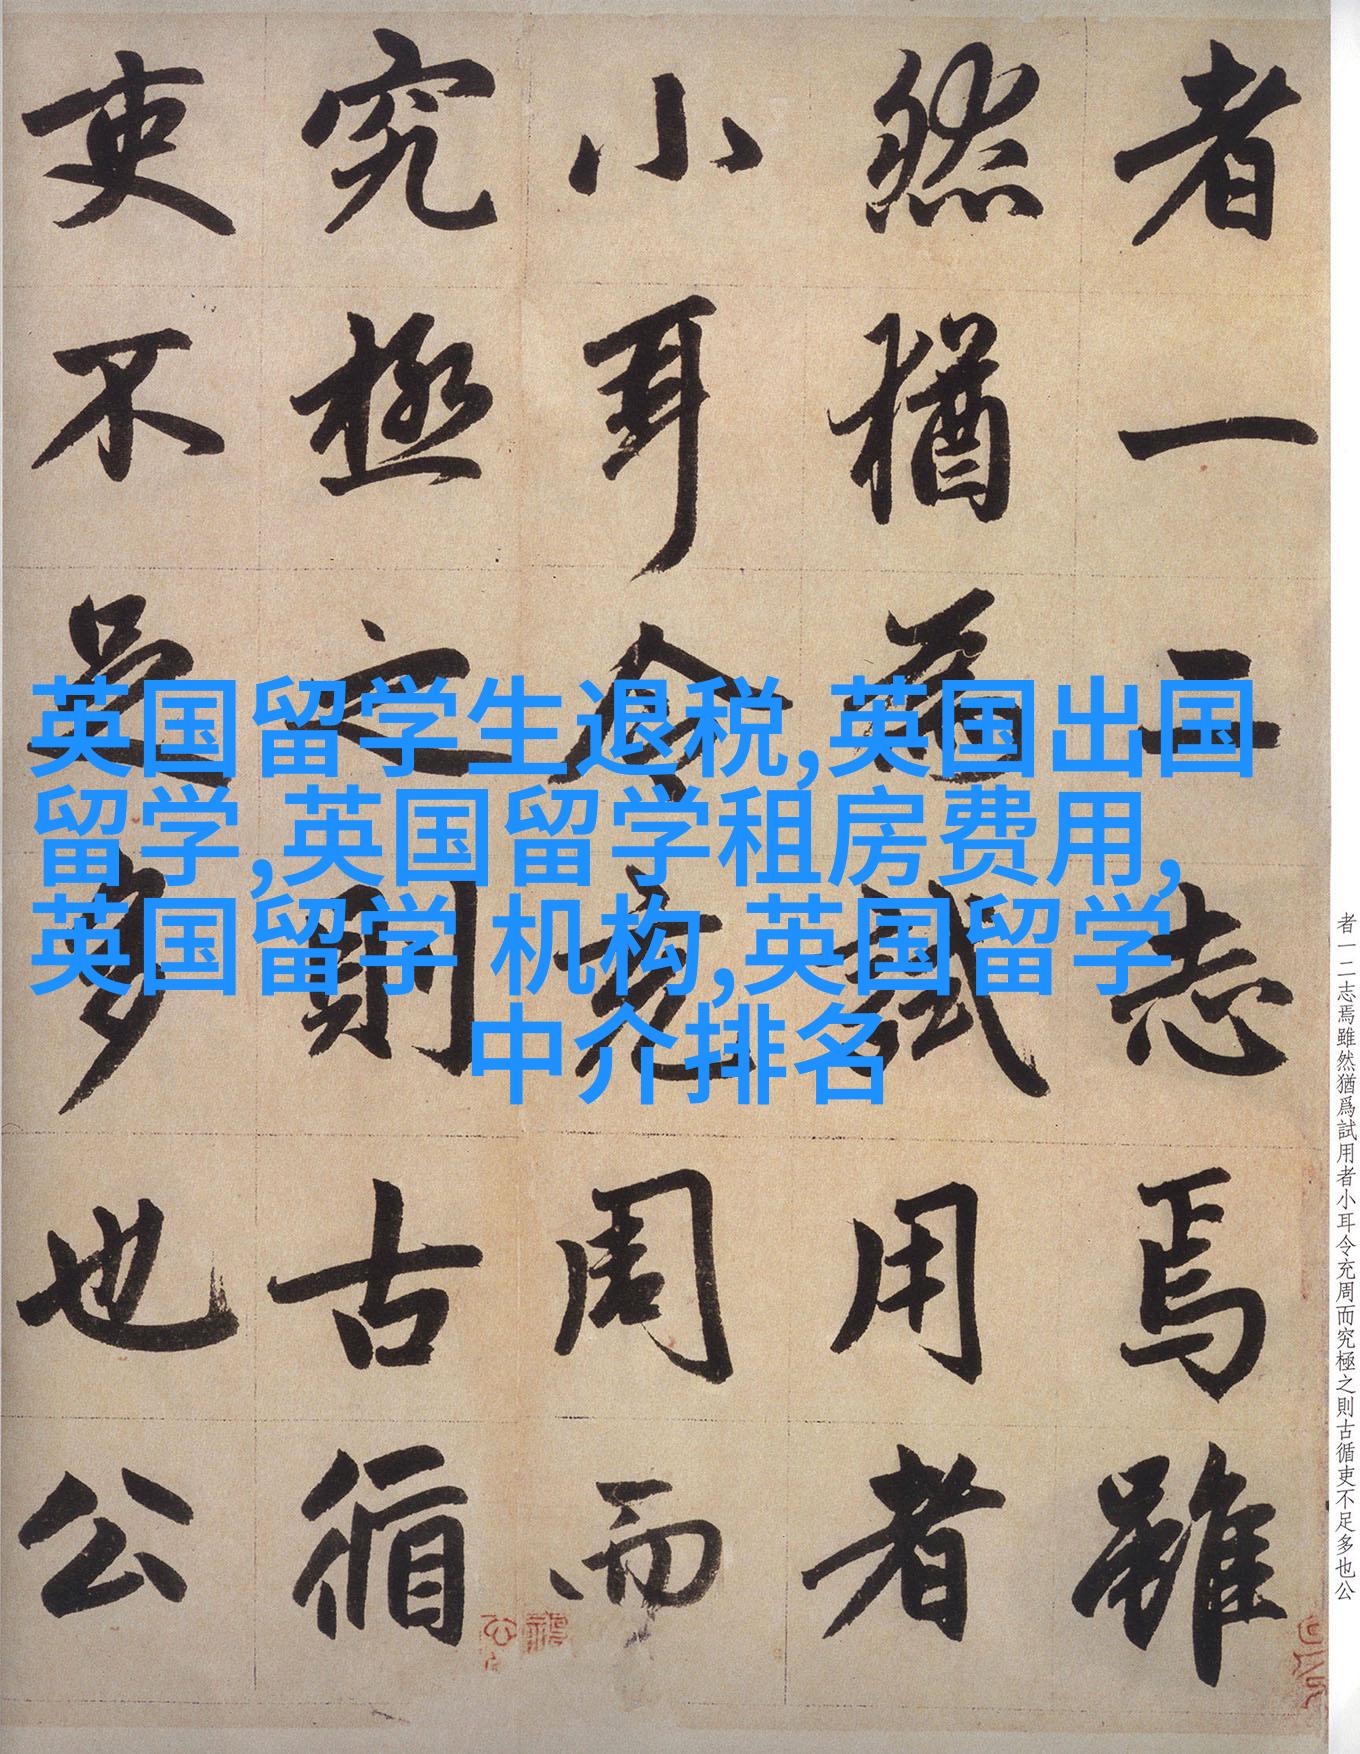 者一二志焉雖
然猶為試用者
小耳令充周而
究極之則古循
吏不足多也公
英国留学生退税,英国出国
留学,英国留学租房费用,
英国留学 机构,英国留学
中介排名
者一二志焉雖然猶爲試用者小耳令充周而究極之則古循吏不足多也公